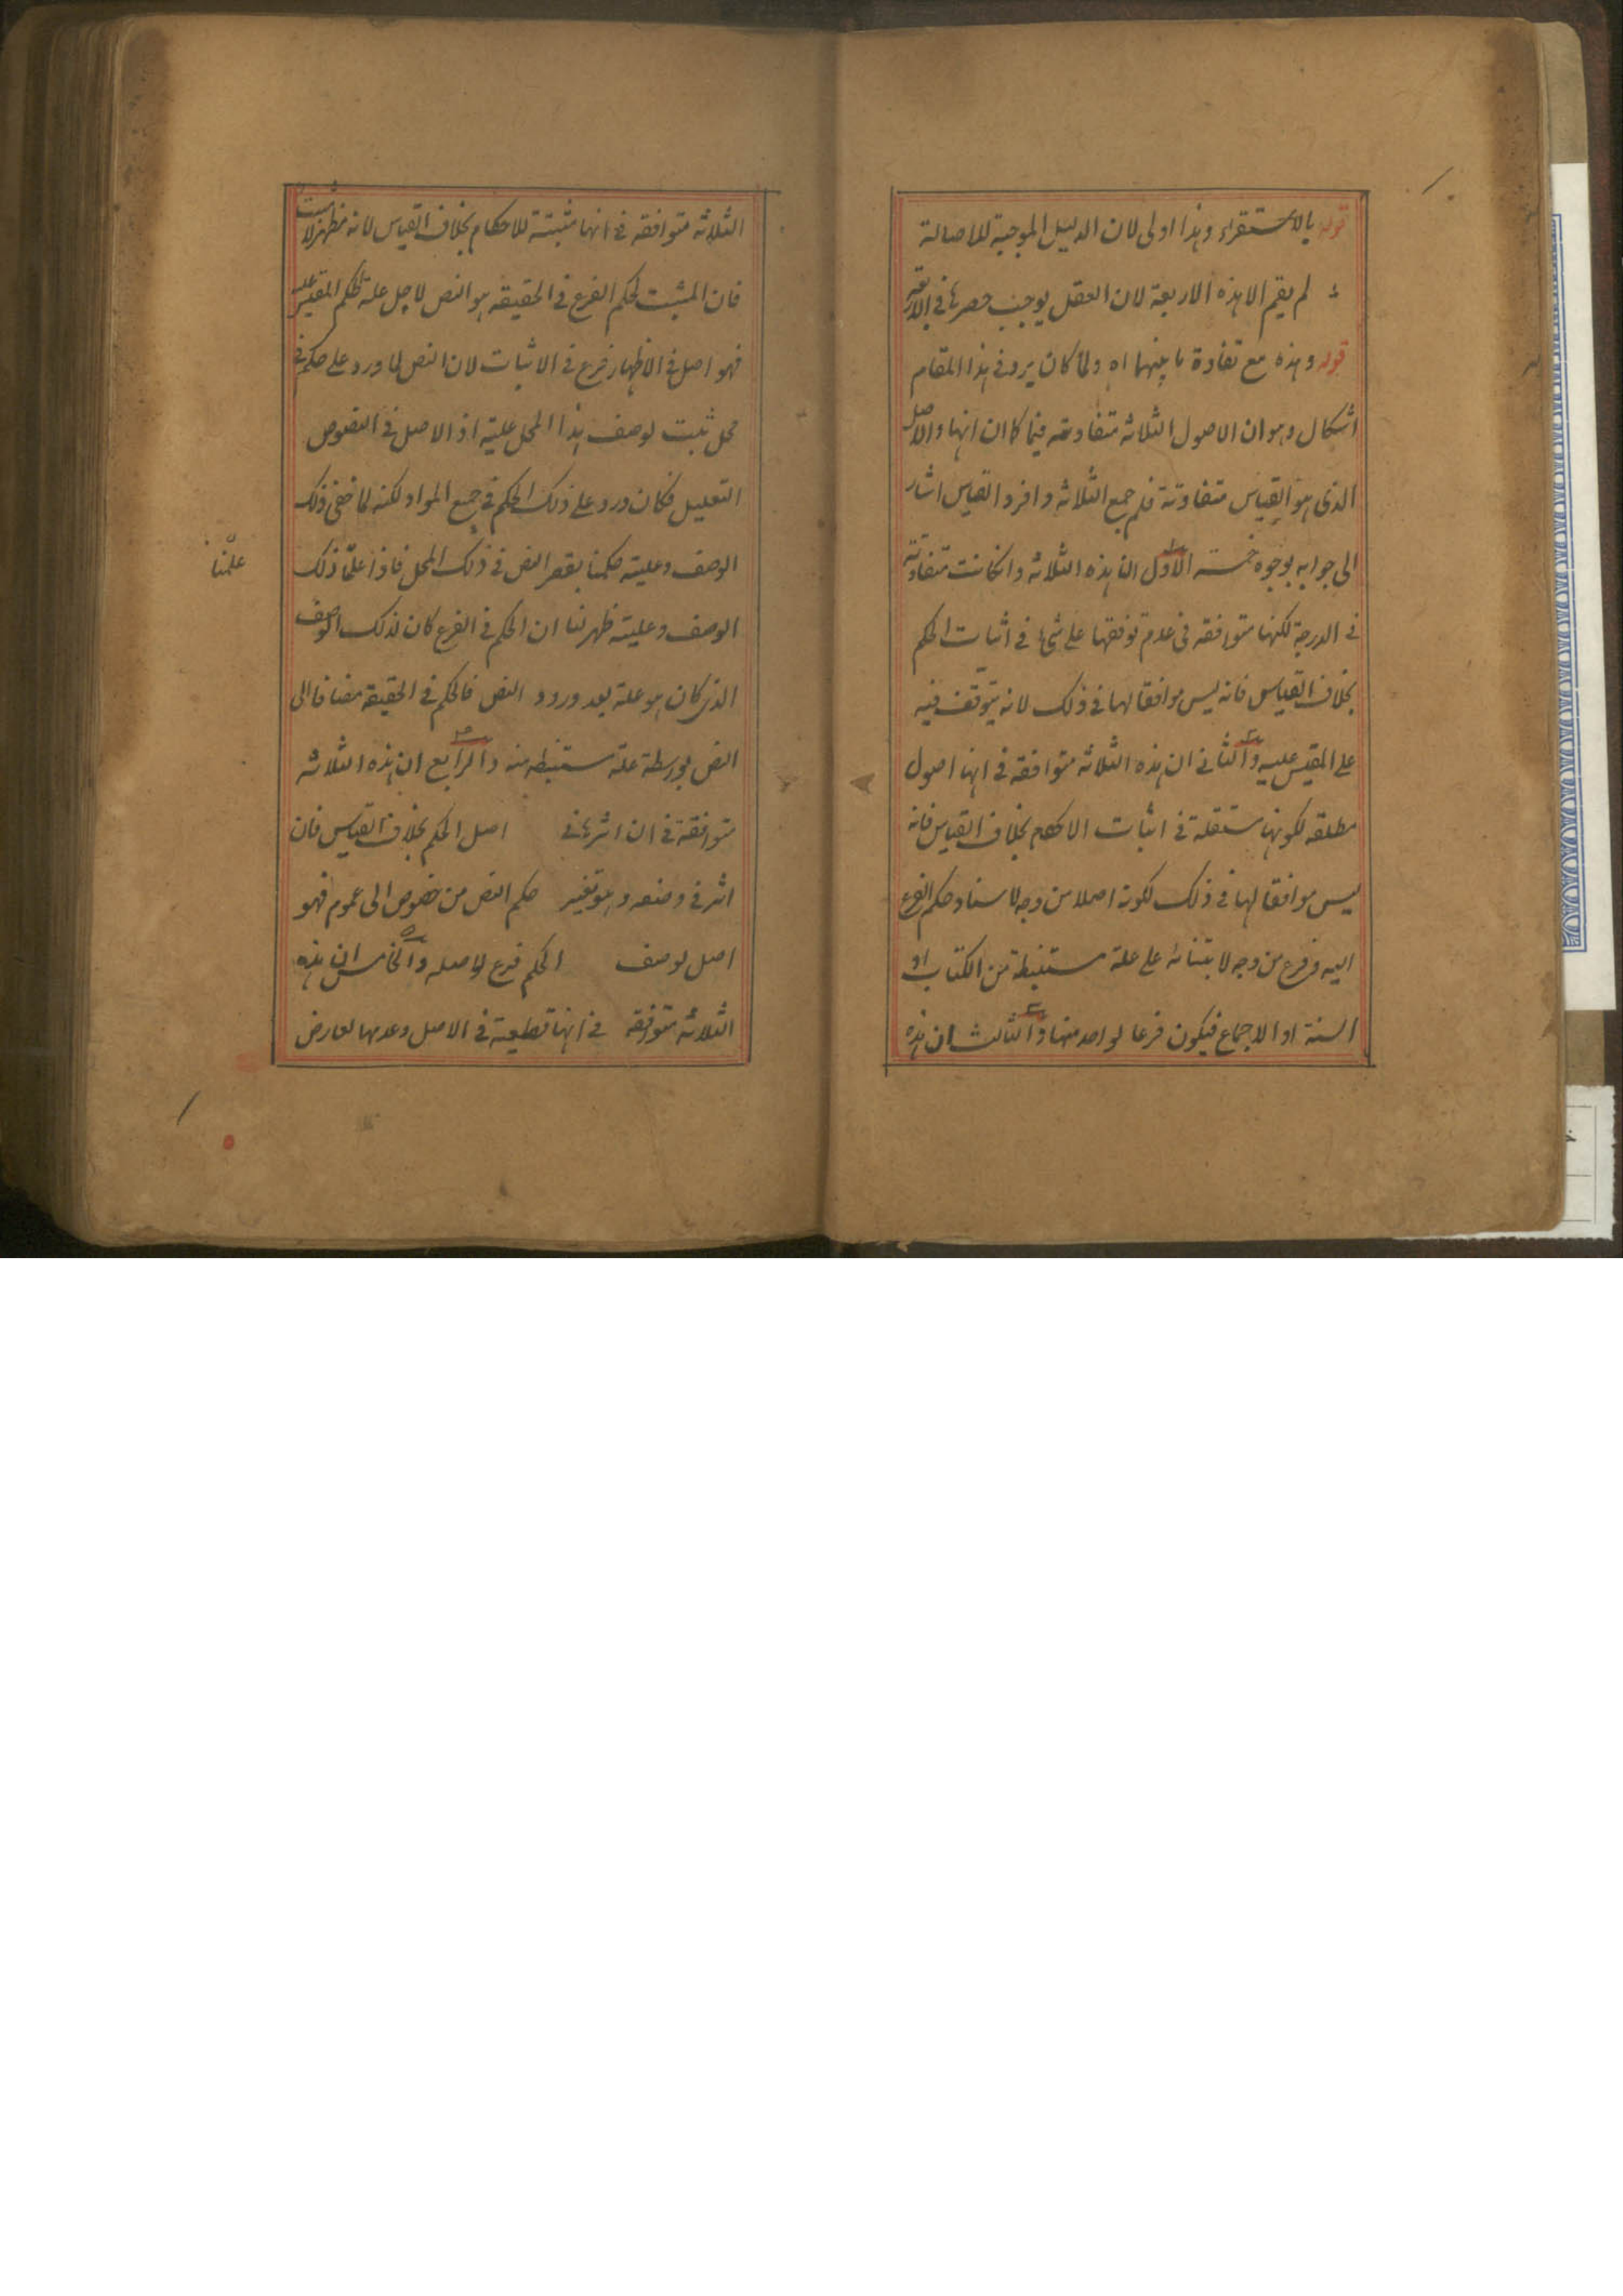 قوله بالاستقراء وهذا اولى لان الدليل الموجبة للاصالة
لم يقم الا هذه الاربعة لان العقل يوجب حصرها في الاربعة
قوله وهذه مع تفاوة ما بينهما اه ولما كان يرد في هذا المقام
اشكال وهو ان الاصول الثلاثة متفاوتة فيما كان انها والاصل
الذى هو القياس متفاوتة فلم جمع الثلاثة وافرد القياس اشار
الى جوابه بوجوه خمسة الاول ان هذه الثلاثة وانكانت متفاوتة
في الدرجة لكنها متوافقة في عدم توقفها على شئ في اثبات الحكم
بخلاف القياس فانه ليس موافقا لها في ذلك لانه يتوقف فيه
على المقيس عليه والثانى ان هذه الثلاثة متوافقة في انها اصول
مطلقة لكونها مستقلة في اثبات الاحكام بخلاف القياس فانه
ليس موافقا لها في ذلك لكونه اصلا من وجه لاسناد حكم الفرع
اليه وفرع من وجه لابتنائه على علة مستنبطة من الكتاب او
السنة او الاجماع فيكون فرعا لواحد منها والثالث ان هذه
الثلاثة متوافقة في انها مثبتة للاحكام بخلاف القياس لانه مظهر لا مثبت
فان المثبت لحكم الفرع في الحقيقة هو النص لاجل علة لحكم المقيس عليه
فهو اصل في الاظهار فرع في الاثبات لان النص لما ورد على حكم في
محل ثبت لوصف هذا المحل علية اذ الاصل في النصوص
التعليل فكان ورد على ذلك الحكم في جميع المواد لكنه لما خفى ذلك
الوصف وعليته حكمنا بقصر النص في ذلك المحل فاذا علمنا ذلك
علمنا
الوصف وعليته ظهر لنا ان الحكم في الفرع كان لذلك الوصف
الذى كان هو علة بعد ورود النص فالحكم في الحقيقة مضافا الى
النص بواسطة علة مستنبطه منه والرابع ان هذه الثلاثة
متوافقة في ان اثرها في اصل الحكم بخلاف القياس فان
اثر في وصفه وهو تغيير حكم النص من خصوص الى عموم فهو
اصل لوصف الحكم فرع لاصله والخامس ان هذه
الثلاثة متوافقة في انها قطعية في الاصل وعدمها لعارض